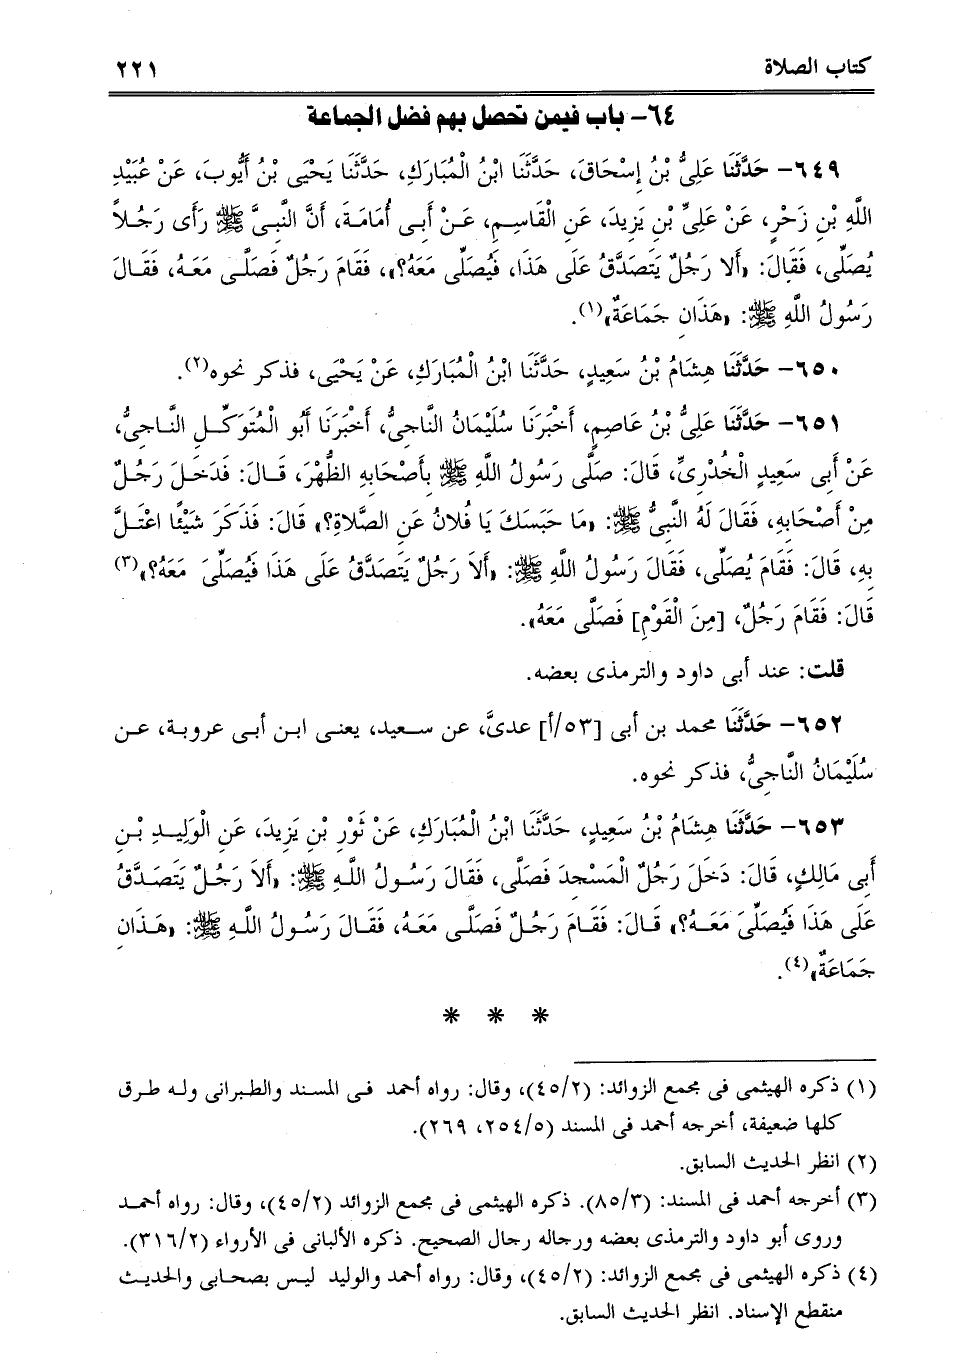 كتاب الصلاة ٢٢١
٦٤- باب فيمن تحصل بهم فضل الجماعة
٦٤٩- حَدَّثَنَا عَلِىُّ بْنُ إِسْحَاقَ، حَدَّثَنَا ابْنُ الْمُبَارَكِ، حَدَّثَنَا يَحْيَى بْنُ أَيُّوبَ، عَنْ عُبَيْدِ
اللَّهِ بْنِ زَحْرٍ، عَنْ عَلِىِّ بْنِ يَزِيدَ، عَنِ الْقَاسِمِ، عَنْ أَبِى أُمَامَةَ، أَنَّ النَّبِىَّ ﷺ رَأَى رَجُلاً
يُصَلِّى، فَقَالَ: «أَلا رَجُلٌ يَتَصَدَّقُ عَلَى هَذَا، فَيُصَلِّى مَعَهُ؟»، فَقَامَ رَجُلٌ فَصَلَّى مَعَهُ، فَقَالَ
رَسُولُ اللَّهِ ﷺ: «هَذَانِ جَمَاعَةٌ»(١).
٦٥٠- حَدَّثَنَا هِشَامُ بْنُ سَعِيدٍ، حَدَّثَنَا ابْنُ الْمُبَارَكِ، عَنْ يَحْيَى، فذكر نحوه(٢).
٦٥١- حَدَّثَنَا عَلِىُّ بْنُ عَاصِمٍ، أَخْبَرَنَا سُلَيْمَانُ النَّاجِىُّ، أَخْبَرَنَا أَبُو الْمُتَوَكِّلِ النَّاجِىُّ،
عَنْ أَبِى سَعِيدٍ الْخُدْرِىِّ، قَالَ: صَلَّى رَسُولُ اللَّهِ ﷺ بِأَصْحَابِهِ الظُّهْرَ، قَالَ: فَدَخَلَ رَجُلٌ
مِنْ أَصْحَابِهِ، فَقَالَ لَهُ النَّبِىُّ ﷺ: «مَا حَبَسَكَ يَا فُلانُ عَنِ الصَّلاةِ؟» قَالَ: فَذَكَرَ شَيْئًا اعْتَلَّ
بِهِ، قَالَ: فَقَامَ يُصَلِّى، فَقَالَ رَسُولُ اللَّهِ ﷺ: «أَلاَ رَجُلٌ يَتَصَدَّقُ عَلَى هَذَا فَيُصَلِّىَ مَعَهُ؟»(٣)
قَالَ: فَقَامَ رَجُلٌ، [مِنَ الْقَوْمِ] فَصَلَّى مَعَهُ».
قلت: عند أبى داود والترمذى بعضه.
٦٥٢- حَدَّثَنَا محمد بن أبى [٥٣/أ] عدىَّ، عن سعيد، يعنى ابن أبى عروبة، عن
سُلَيْمَانُ النَّاجِىُّ، فذكر نحوه.
٦٥٣- حَدَّثَنَا هِشَامُ بْنُ سَعِيدٍ، حَدَّثَنَا ابْنُ الْمُبَارَكِ، عَنْ ثَوْرِ بْنِ يَزِيدَ، عَنِ الْوَلِيدِ بْنِ
أَبِى مَالِكٍ، قَالَ: دَخَلَ رَجُلٌ الْمَسْجِدَ فَصَلَّى، فَقَالَ رَسُولُ اللَّهِ ﷺ: «أَلاَ رَجُلٌ يَتَصَدَّقُ
عَلَى هَذَا فَيُصَلِّىَ مَعَهُ؟» قَالَ: فَقَامَ رَجُلٌ فَصَلَّى مَعَهُ، فَقَالَ رَسُولُ اللَّهِ ﷺ: «هَذَانِ
جَمَاعَةٌ»(٤).
* * *
(١) ذكره الهيثمى فى مجمع الزوائد: (٤٥/٢)، وقال: رواه أحمد فى المسند والطبرانى وله طرق
كلها ضعيفة، أخرجه أحمد فى المسند (٢٥٤/٥، ٢٦٩).
(٢) انظر الحديث السابق.
(٣) أخرجه أحمد فى المسند: (٨٥/٣). ذكره الهيثمى فى مجمع الزوائد (٤٥/٢)، وقال: رواه أحمد
وروى أبو داود والترمذى بعضه ورجاله رجال الصحيح. ذكره الألبانى فى الأرواء (٣١٦/٢).
(٤) ذكره الهيثمى فى مجمع الزوائد: (٤٥/٢)، وقال: رواه أحمد والوليد ليس بصحابى والحديث
منقطع الإسناد. انظر الحديث السابق.